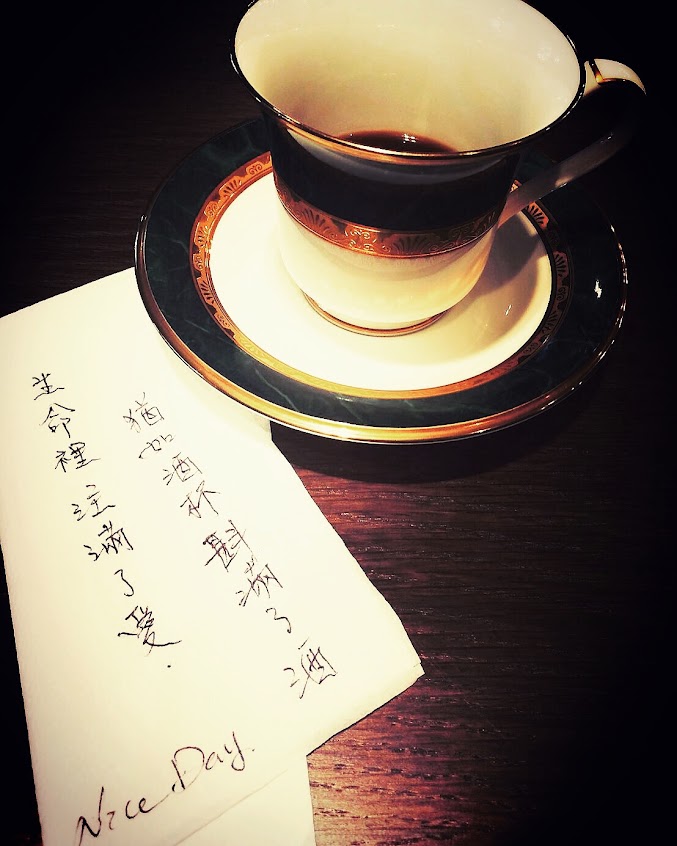 猶如酒杯斟滿了酒
生命裡 注滿了愛.
Nice Day.